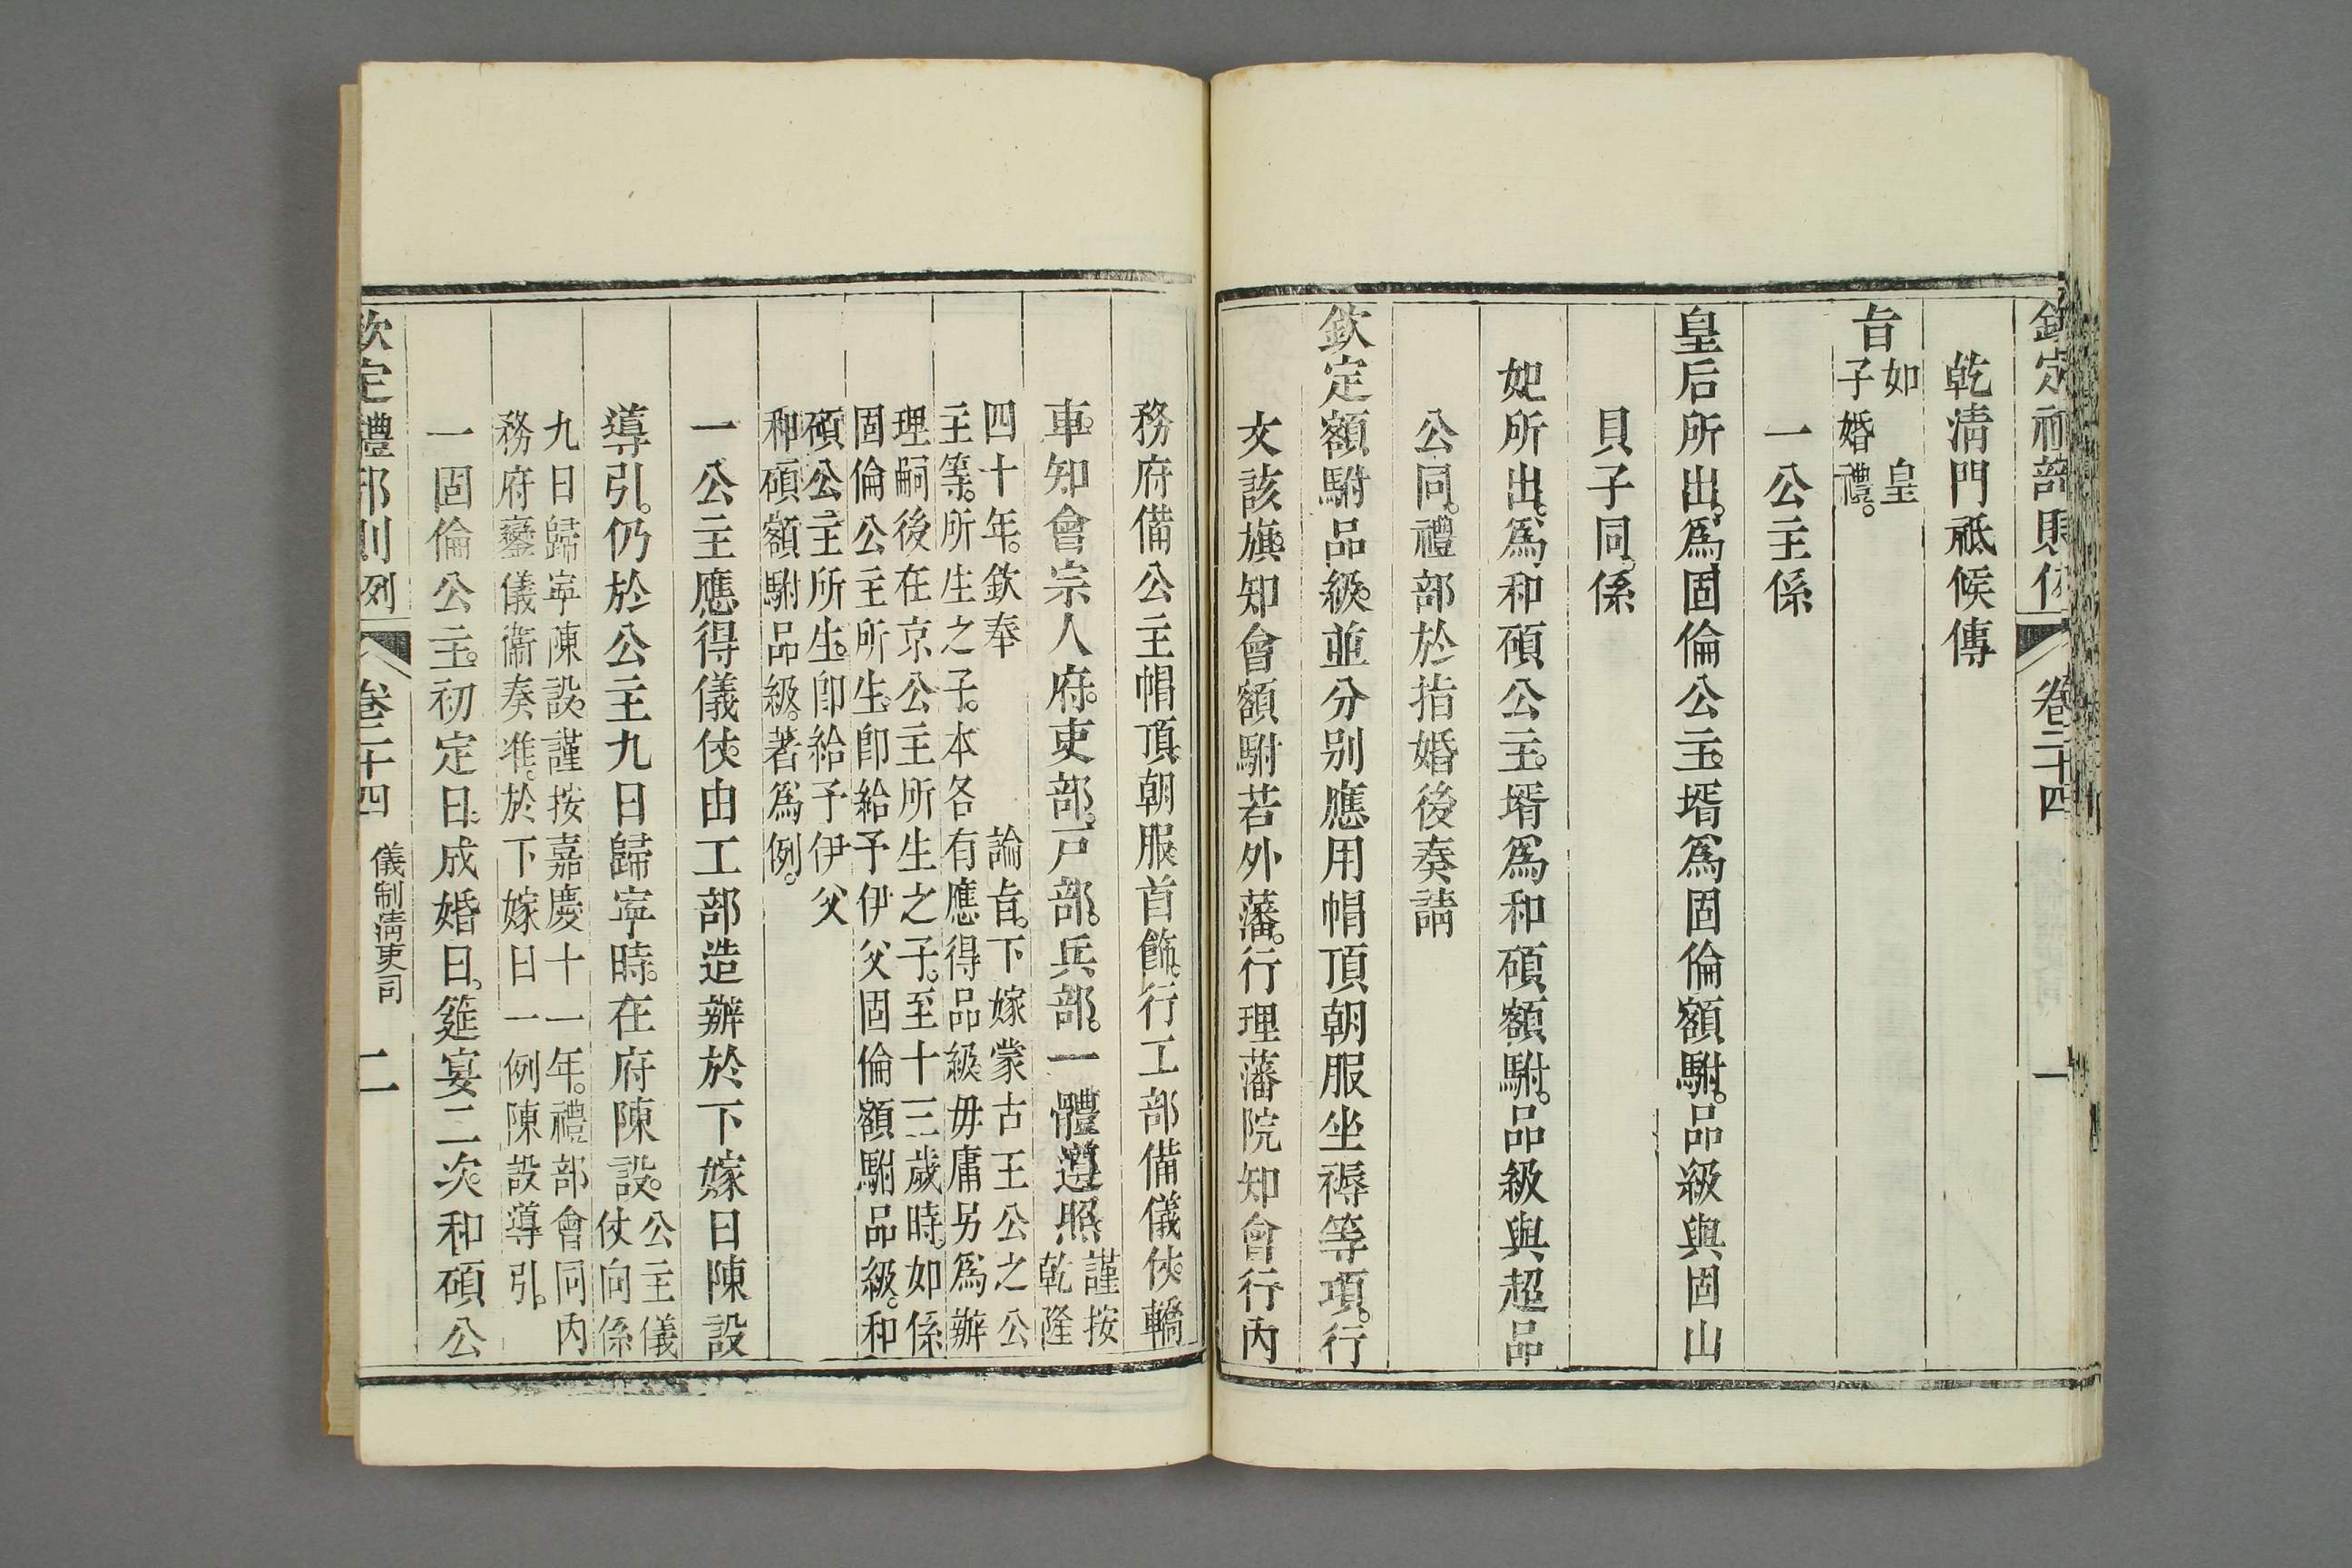 欽定禮部則例 卷二十四 一
乾淸門祗候傳
旨如 皇
子婚禮。
一公主係
皇后所出。爲固倫公主。壻爲固倫額駙。品級與固山
貝子同。係
妃所出。爲和碩公主。壻爲和碩額駙。品級與超品
公同。禮部於指婚後奏請
欽定額駙品級。並分別應用帽頂朝服坐褥等項。行
文該旗知會額駙若外藩。行理藩院知會行內
務府備公主帽頂朝服首飾。行工部備儀仗。轎
車。知會宗人府。吏部。戶部。兵部。一體遵照謹按
乾隆
四十年。欽奉 諭旨。下嫁蒙古王公之公
主等。所生之子。本各有應得品級毋庸另爲辦
理嗣後在京公主所生之子。至十三歲時。如係
固倫公主所生。卽給予伊父固倫額駙品級。和
碩公主所生。卽給予伊父
和碩額駙品級。著爲例。
一公主應得儀仗。由工部造辦於下嫁日陳設
導引。仍於公主九日歸寧時。在府陳設。公主儀
仗向係
九日歸寧陳設。謹按嘉慶十一年。禮部會同內
務府鑾儀衞奏准。於下嫁日一例陳設導引。
一固倫公主。初定日。成婚日。筵宴二次。和碩公
欽定禮部則例 卷二十四 儀制淸吏司 二